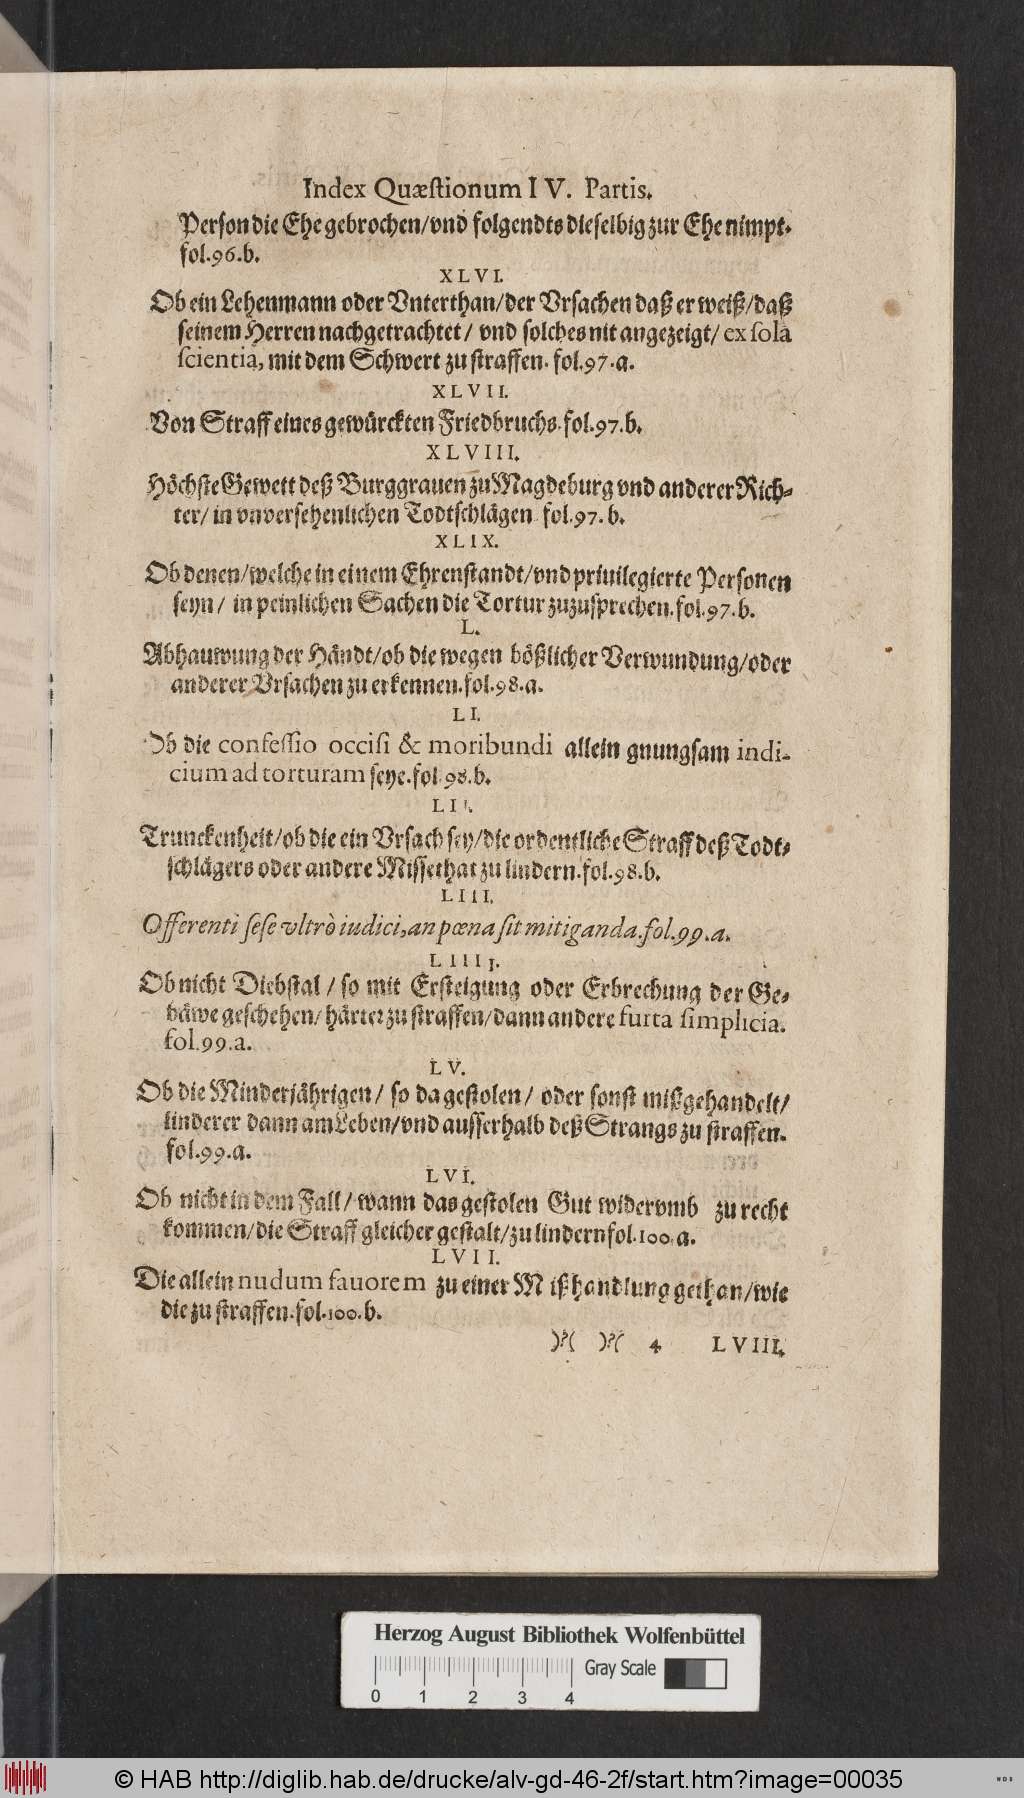 Index Quæstionum IV. Partis.
Person die Ehe gebrochen/vnd folgendts dieselbig zur Ehe nimpt.
fol.96.b.
XLVI.
Ob ein Lehenmann oder Vnterthan/der Vrsachen daß er weiß/daß
seinem Herren nachgetrachtet/ vnd solches nit angezeigt/ ex solà
scientia, mit dem Schwert zu straffen. fol.97.a.
XLVII.
Von Straff eines gewürckten Friedbruchs.fol.97.b.
XLVIII.
Höchste Gewett deß Burggrauen zu Magdeburg vnd anderer Rich-
ter/ in vnversehenlichen Todtschlägen. fol.97.b.
XLIX.
Ob denen/welche in einem Ehrenstandt/vnd priuilegierte Personen
seyn/ in peinlichen Sachen die Tortur zuzusprechen.fol.97.b.
L.
Abhauwung der Händt/ob die wegen bößlicher Verwundung/oder
anderer Vrsachen zu erkennen.fol.98.a.
LI.
Ob die confessio occisi & moribundi allein gnungsam indi-
cium ad torturam seye.fol.98.b.
LII.
Trunckenheit/ob die ein Vrsach sey/die ordentliche Straff deß Todt-
schlägers oder andere Missethat zu lindern.fol.98.b.
LIII.
Offerenti sese vltrò iudici,an pœna sit mitiganda.fol.99.a.
LIIIJ.
Ob nicht Diebstal / so mit Ersteigung oder Erbrechung der Ge-
bäwe geschehen/ härter zu straffen/dann andere furta simplicia.
fol.99.a.
LV.
Ob die Minderjährigen/ so da gestolen/ oder sonst mißgehandelt/
linderer dann am Leben/vnd ausserhalb deß Strangs zu straffen.
fol.99.a.
LVI.
Ob nicht in dem Fall/ wann das gestolen Gut widervmb zu recht
kommen/die Straff gleicher gestalt/zu lindern fol.100.a.
LVII.
Die allein nudum fauorem zu einer Mißhandlung gethan/wie
die zu straffen.fol.100.b.
)?( )?( 4 LVIII.
Herzog August Bibliothek Wolfenbüttel
Gray Scale
0 1 2 3 4
© HAB http://diglib.hab.de/drucke/alv-gd-46-2f/start.htm?image=00035